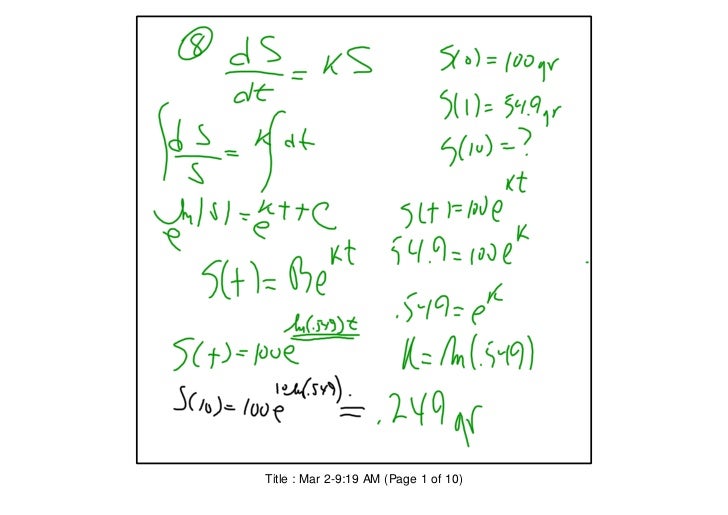 ⑧ dS/dt = KS
∫dS/S = K∫dt
e^ln|S| = e^kt+C
S(t) = Be^kt
S(t) = 100e^ln(.549)t
S(10) = 100e^10ln(.549). = .249 gr
S(0) = 100gr
S(1) = 54.9gr
S(10) = ?
S(t) = 100e^kt
54.9 = 100e^k
.549 = e^k
K = ln(.549)
Title : Mar 2-9:19 AM (Page 1 of 10)